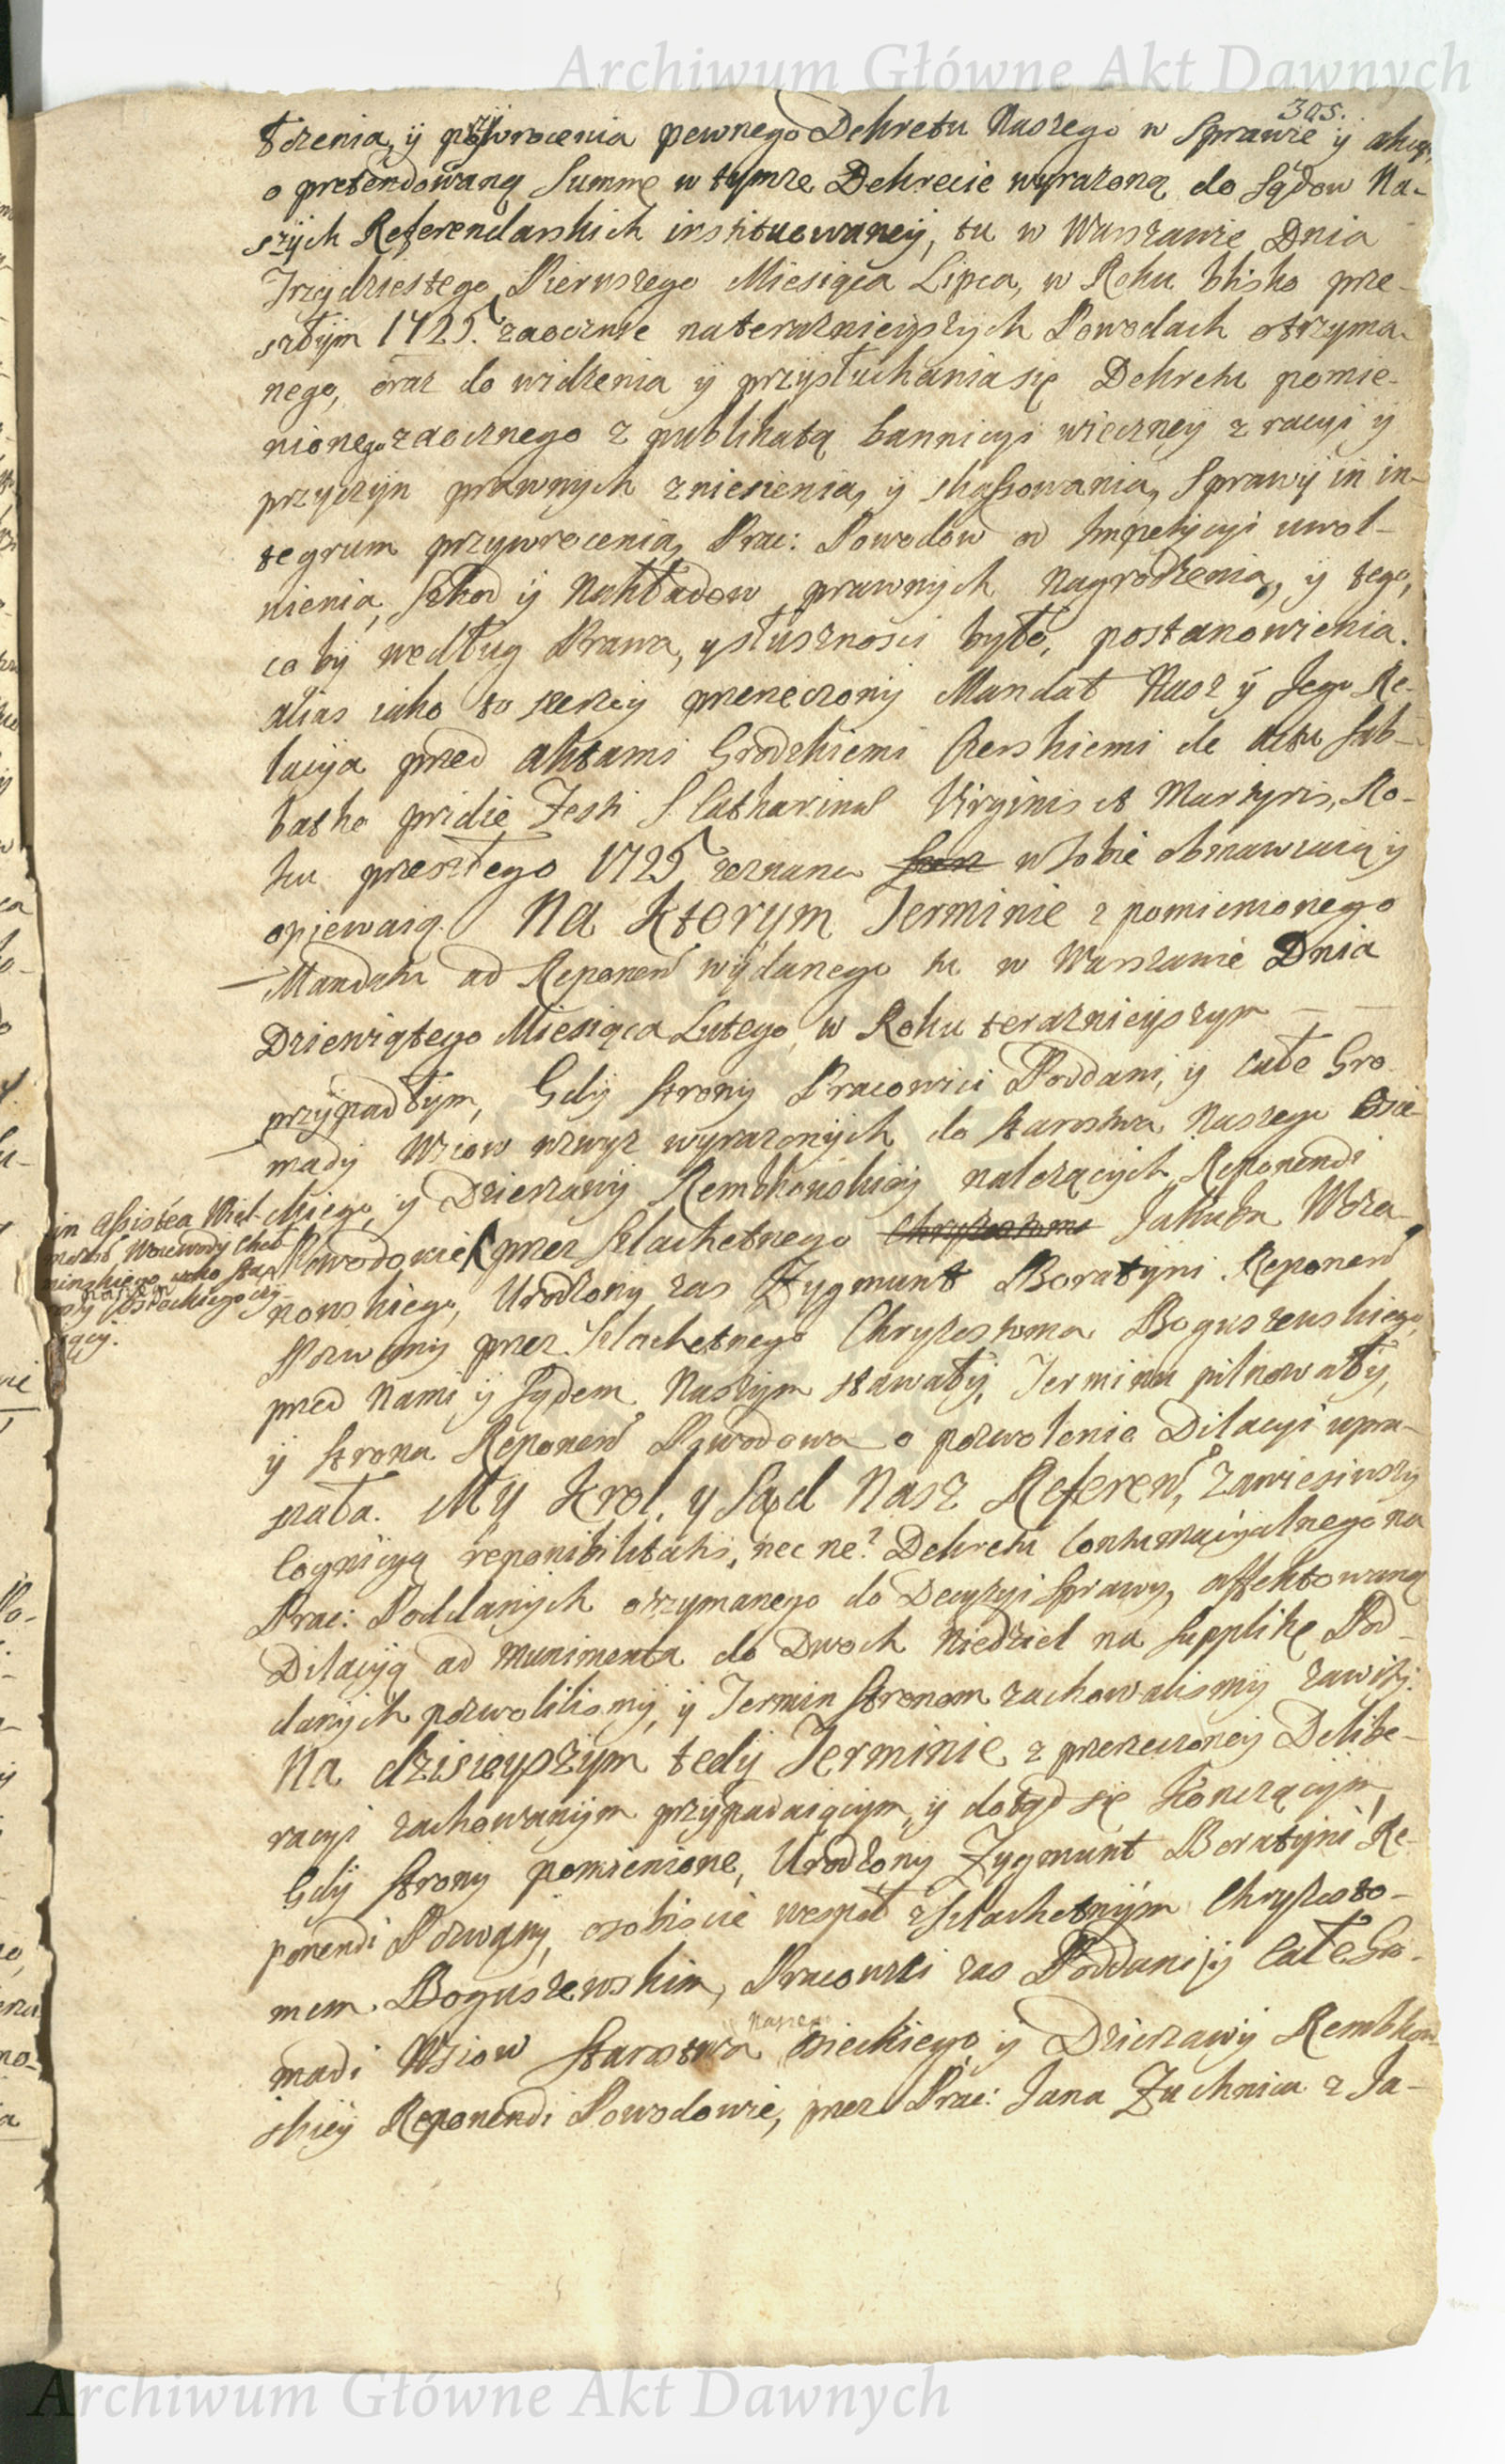 Archiwum Główne Akt Dawnych
305.
tzenia, ÿ przÿwrocenia pewnego Dekretu Naszego w Sprawie ÿ akcyi
o pretendowaną Summę w tymze Dekrecie wyrazoną do Sądow Na-
szÿch Referendarskich instituowaneÿ, tu w Warszawie Dnia
Trzÿdziestego Pierwszego Miesiąca Lipca, w Roku blisko prze-
szłÿm 1725. zaocznie na terazniejszÿch Powodach otrzyma-
nego, oraz do widzenia ÿ przÿsłuchania się Dekretu pomie-
nionego zaocznego z publikatą bannicyi wieczneÿ z racyi ÿ
przyczÿn prawnÿch zniesienia, ÿ skassowania, Sprawÿ in in-
tegrum przÿwrocenia, Prac: Powodow od Impetÿcyi uwol-
nienia, Szkod ÿ Nakładow prawnÿch nagrodzenia, ÿ tego,
co bÿ według Prawa, y słusznosci było, postanowienia.
alias iako to szerzeÿ przerzeczonÿ Mandat Nasz ÿ Jego Re-
lacÿa przed aktami Grodzkiemi Czerskiemi de actu Sab-
batho pridie Festi S Catharinae Virginis et Martÿris, Ro-
ku przeszłego 1725 zeznana w Sobie obmawiaią ÿ
opiewaią. Na Ktorym Terminie z pomienionego
Mandatu ad Reponen wÿdanego tu w Warszawie Dnia
Dziewiątego Miesiąca Lutego, w Roku terazniejszym
przÿpadłÿm, Gdÿ Stronÿ Pracowici Poddani, ÿ całe Gro-
madÿ Wsiow wzwÿz wyrazonÿch do Starostwa Naszego Osie-
ckiego, ÿ Dzierzawÿ Rembkowskieÿ nalezącÿch, Reponendi
Powodowie przez Szlachetnego Chryzostoma Jakuba Woza-
nowskiego, Urodzony zas Zygmunt Boratÿni Reponen
Pozwany przez Szlachetnego Chryzostoma Boguszewskiego,
przed Nami ÿ Sądem Naszÿm stawałÿ, Terminu pilnowałÿ,
ÿ Strona Reponen Powodowa o pozwolenie Dilacyi upra-
szała. My Krol, y Sąd Nasz Referen, zawiesiwszÿ
Cognicÿą reponibilitatis, nec ne? Dekretu Contumacÿalnego na
Prac: Poddanÿch otrzymanego do Decyzyi Sprawy, affektowaną
Dilacÿą ad munimenta do Dwoch Niedziel na Supplikę Pod-
danÿch pozwolilismÿ, ÿ Termin Stronom zachowalismÿ zawitÿ.
Na dzisieyszÿm tedÿ Terminie z przerzeczoneÿ Delibe-
racyi zachowanÿm przÿpadaiącym, ÿ dotąd się Kończącÿm,
Gdÿ Strony pomienione, Urodzony Zygmunt Boratÿni Re-
ponendi Pozwany, osobiscie wespoł z Szlachetnÿm Chryzosto-
mem Boguszewskim, Pracowici zas Poddani ÿ całe Gro-
madi Wsiow Starostwa Naszego Osieckiego, ÿ Dzierzawÿ Rembkow-
skieÿ Reponendi Powodowie, przez Prac: Jana Zuchnica z Ja-
in assistea Wiel-
moznᵒ Woiewody Cheł-
minskiego, iako Sta-
rostÿ naszego Osieckiego czÿ-
niącÿ.
Archiwum Główne Akt Dawnych